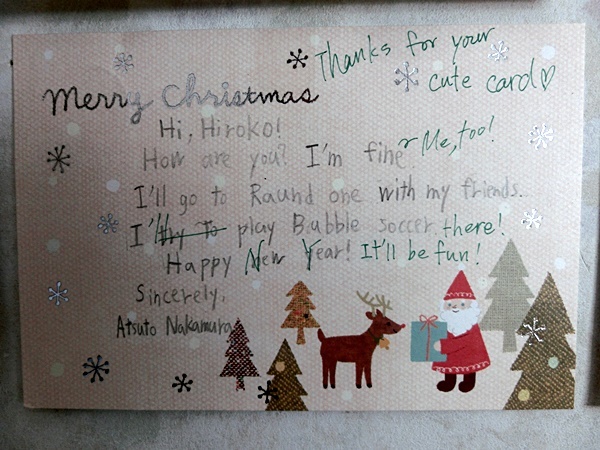 Thanks for your
cute card♡
Merry Christmas
Hi, Hiroko!
How are you? I'm fine Me, too!
I'll go to Raund one with my friends.
I'll try to play Bubble soccer. there!
Happy New Year! It'll be fun!
Sincerely,
Atsuto Nakamura